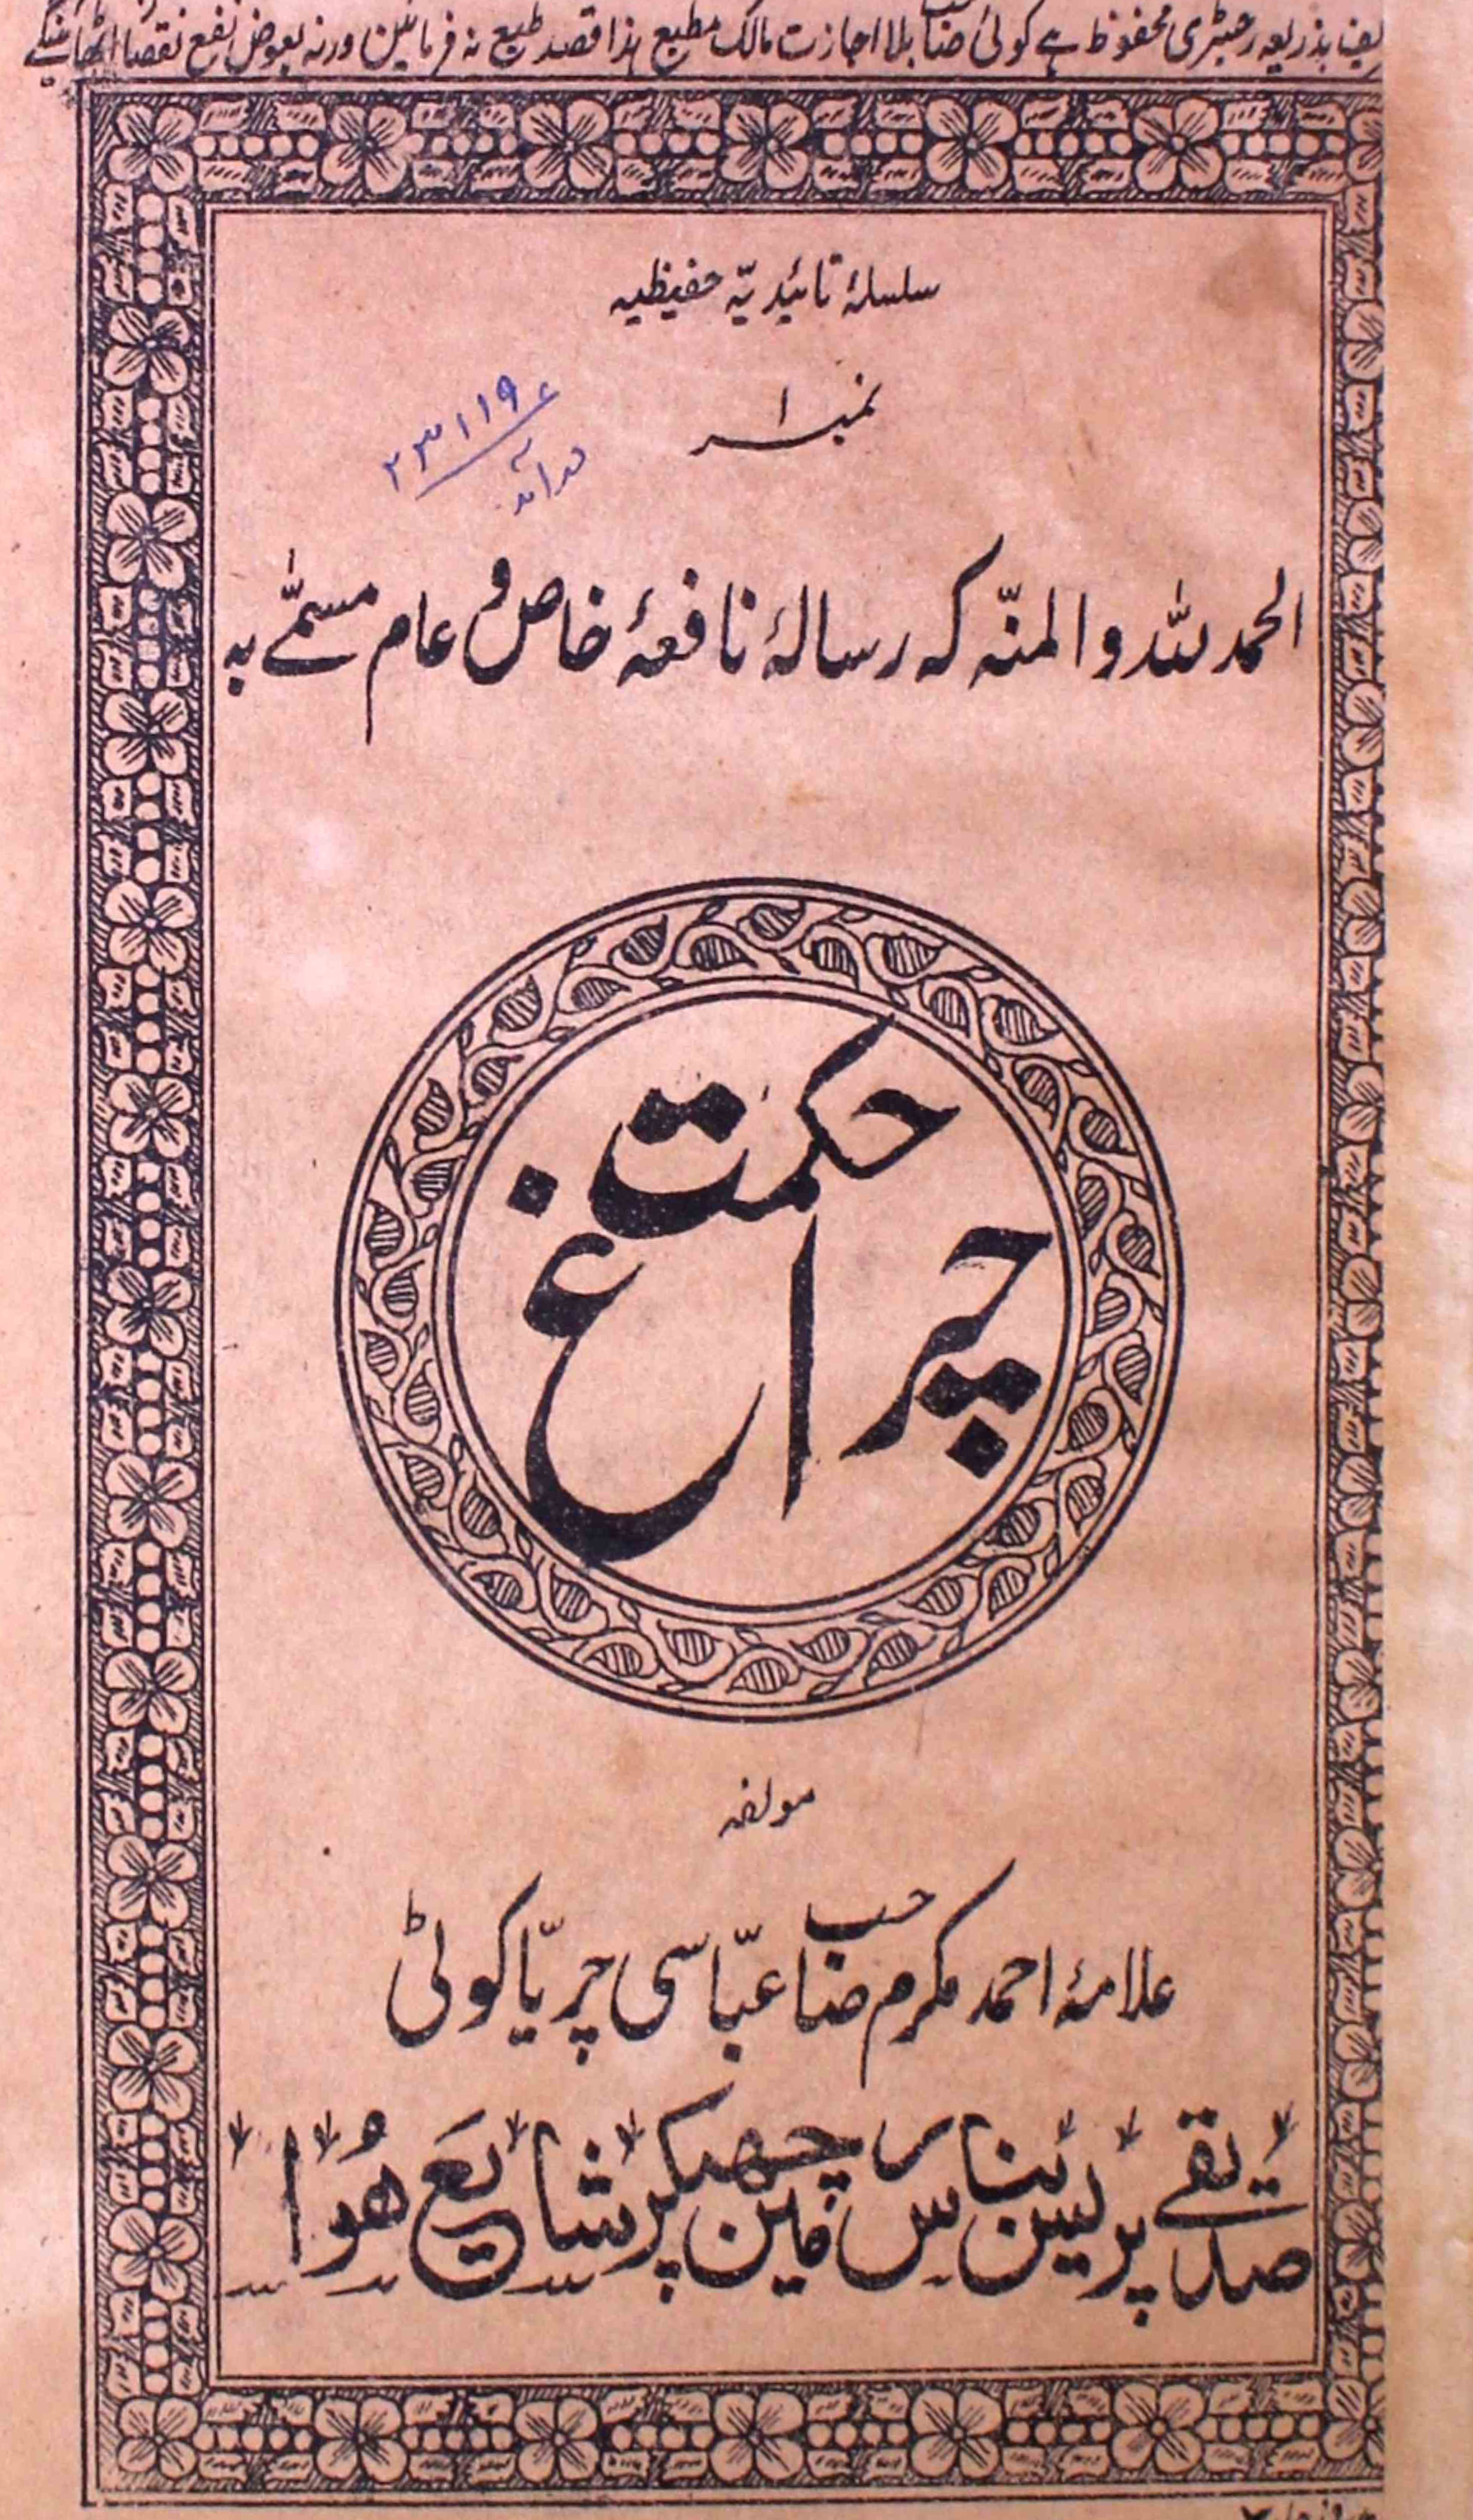 بذریعہ رجسٹری محفوظ ہے کوئی صاحب بلا اجازت مالک مطبع ہذا قصد طبع نہ فرمائیں ورنہ بعوض نفع نقصان اٹھائینگے
سلسلۂ تائیدیّہ حفیظیہ
نمبر ۱
۲۳۱۱۹
الحمد للہ والمنّہ کہ رسالۂ نافعۂ خاص و عام مسمّٰے بہ
چراغ حکمت
مولفہ
علامۂ احمد مکرم صاحب عبّاسی چریّاکوٹی
صدیقے پریس بنارس مین چھپکر شایع ہُوا